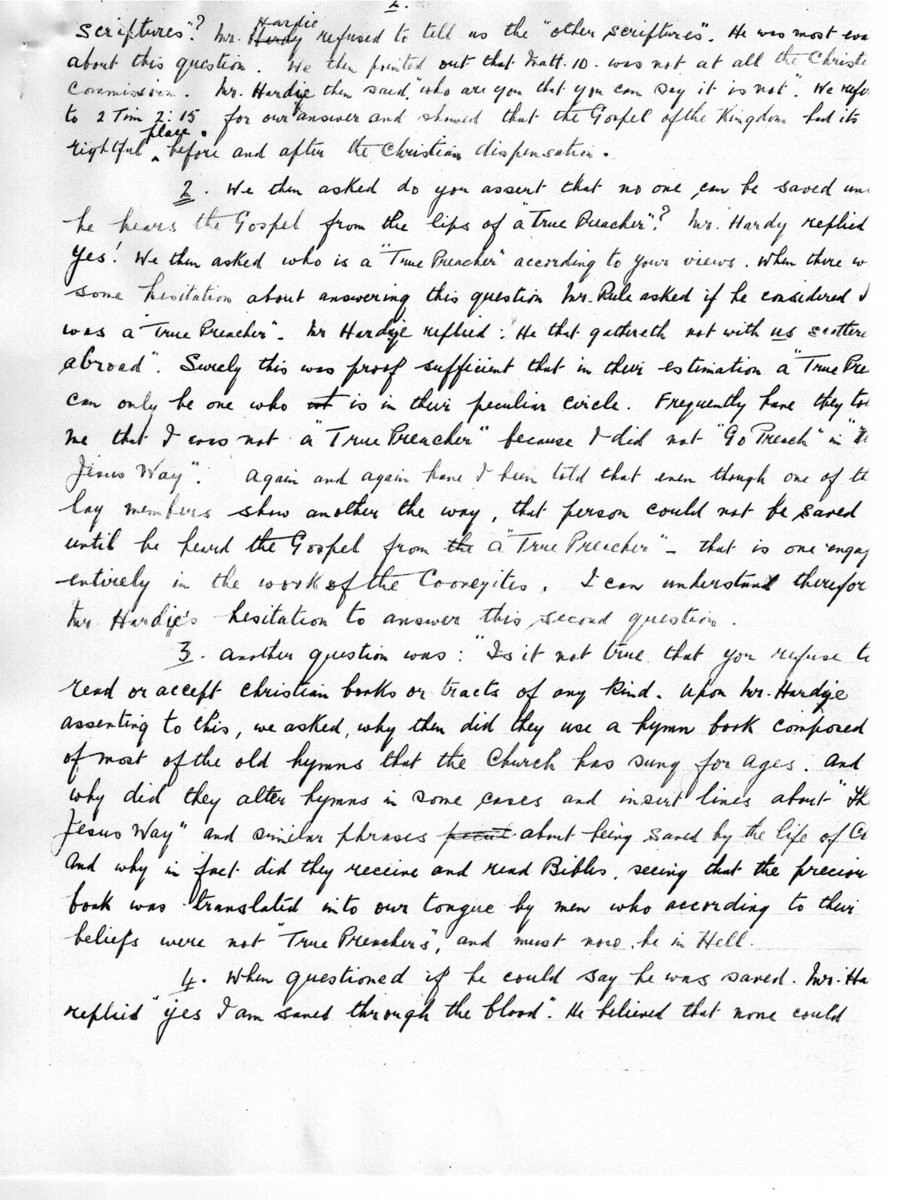 2.
Scriptures"? Mr. Hardie refused to tell us the "other scriptures". He was most eva
about this question. We then pointed out that Matt. 10. was not at all the Christi
Commission. Mr. Hardie then said, "who are you that you can say it is not". We refe
to 2 Tim 2:15 for our answer and showed that the Gospel of the Kingdom had its
rightful place. before and after the Christian dispensation.
2. We then asked do you assert that no one can be saved un
he hears the Gospel from the lips of a "True Preacher"? Mr. Hardy replied
Yes! We then asked who is a "True Preacher" according to your views. When there w
some hesitation about answering this question Mr. Rule asked if he considered I
was a "True Preacher". Mr Hardie replied: "He that gathereth not with us scattere
abroad". Surely this was proof sufficient that in their estimation a "True Pre
can only be one who is in their peculiar circle. Frequently have they to
me that I was not a "True Preacher" because I did not "Go Preach" in "
Jesus Way". Again and again have I been told that even though one of th
lay members show another the way, that person could not be saved
until he heard the Gospel from a "True Preacher" - that is one engag
entirely in the work of the Cooneyites. I can understand therefor
Mr. Hardie's hesitation to answer this second question.
3. Another question was: "Is it not true that you refuse to
read or accept Christian books or tracts of any kind. Upon Mr. Hardie
assenting to this, we asked, why then did they use a hymn book composed
of most of the old hymns that the Church has sung for ages. And
why did they alter hymns in some cases and insert lines about "Th
Jesus Way" and similar phrases about being saved by the life of C
And why in fact did they receive and read Bibles, seeing that the preciou
book was translated into our tongue by men who according to their
beliefs were not "True Preachers", and must now be in Hell.
4. When questioned if he could say he was saved. Mr. Ha
replied "yes I am saved through the blood". He believed that none could